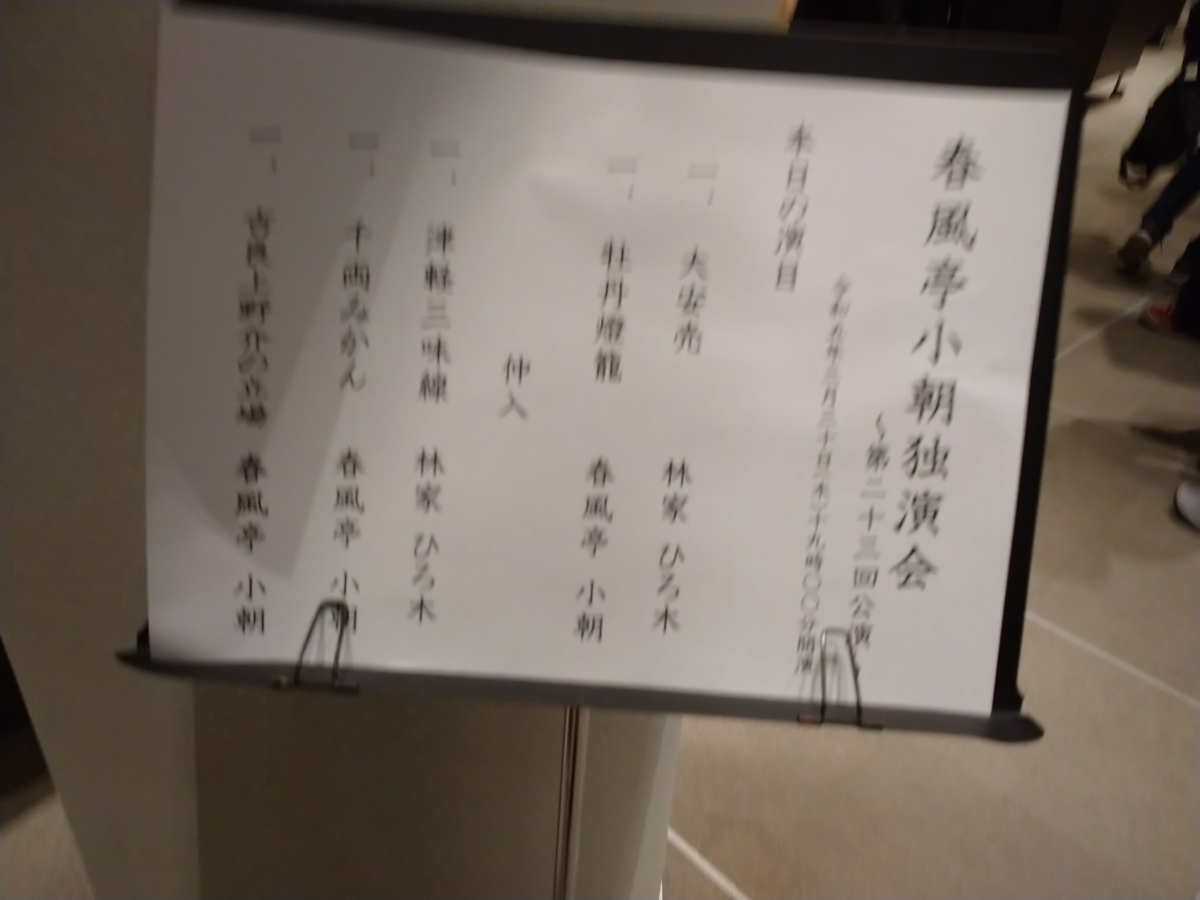 春風亭小朝独演会
〜第二十三回公演〜
月三十日(木)十九時〇〇分開演
本日の演目
一、 大安売 林家 ひろ木
一、 牡丹燈籠 春風亭 小朝
仲入
一、 津軽三味線 林家 ひろ木
一、 千両みかん 春風亭 小朝
一、 吉良上野介の立場 春風亭 小朝